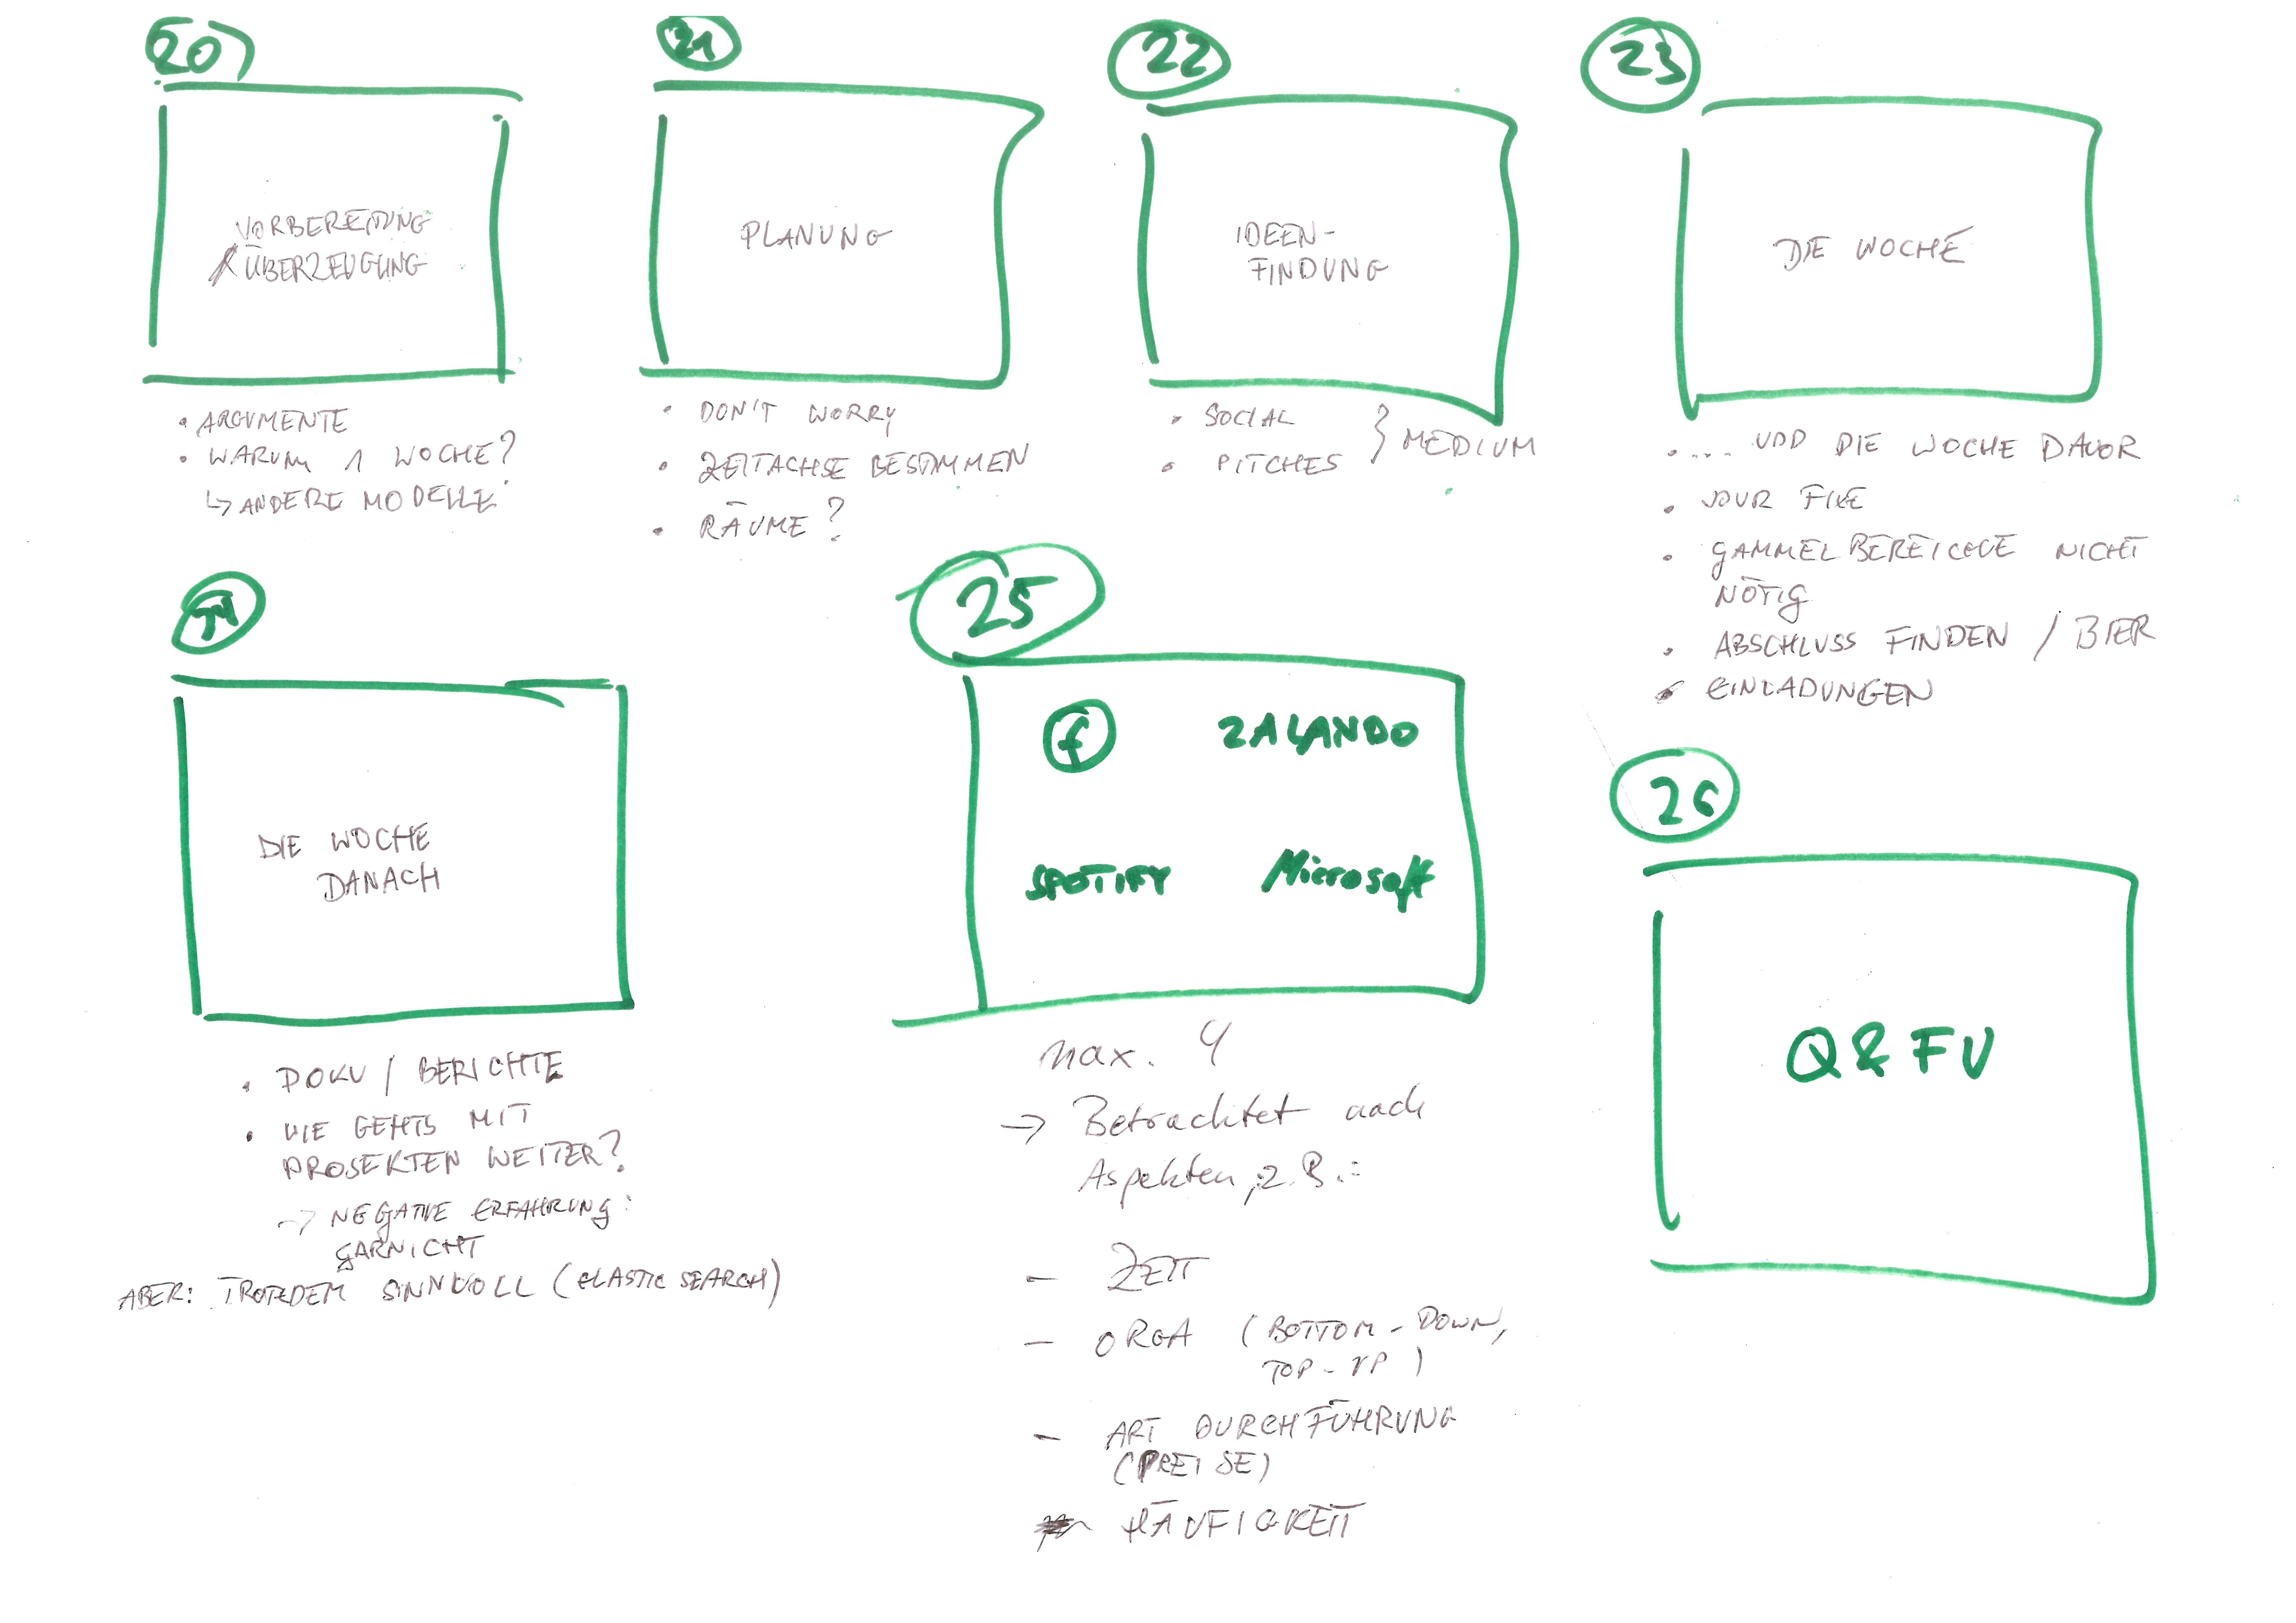 20
VORBEREITUNG
ÜBERZEUGUNG
• ARGUMENTE
• WARUM 1 WOCHE?
↳ ANDERE MODELLE
21
PLANUNG
• DON'T WORRY
• ZEITACHSE BESTIMMEN
• RÄUME?
22
IDEEN-
FINDUNG
• SOCIAL
• PITCHES } MEDIUM
23
DIE WOCHE
• ... UND DIE WOCHE DAVOR
• JOUR FIXE
• GAMMELBEREICHE NICHT
NÖTIG
• ABSCHLUSS FINDEN / BIER
• EINLADUNGEN
DIE WOCHE
DANACH
• DOKU / BERICHTE
• WIE GEHTS MIT
PROJEKTEN WEITER?
-> NEGATIVE ERFAHRUNG:
GARNICHT
ABER: TROTZDEM SINNVOLL (ELASTIC SEARCH)
25
f ZALANDO
SPOTIFY Microsoft
max. 4
-> Betrachtet nach
Aspekten, z.B.:
- ZEIT
- ORGA (BOTTOM-DOWN,
TOP-UP)
- ART DURCHFÜHRUNG
(PREISE)
HÄUFIGKEIT
26
Q & FU